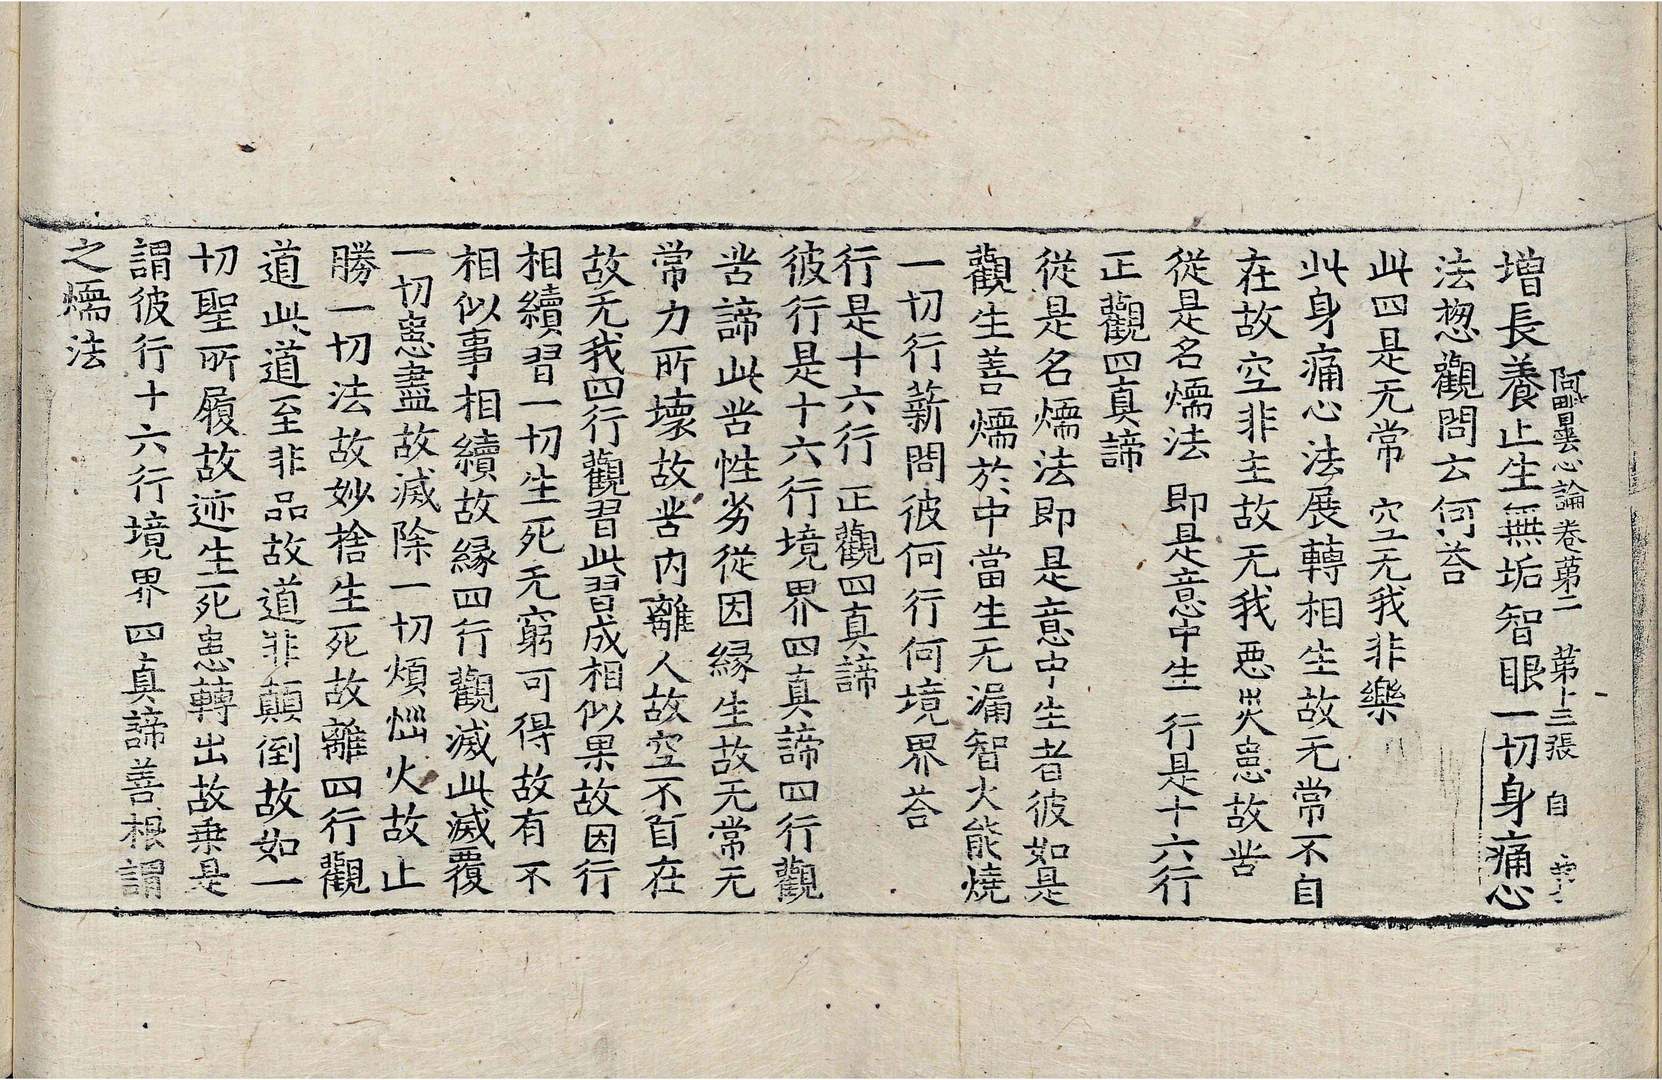 阿毗曇心論卷第二　第十三張　自
增長養止生無垢智眼一切身痛心
法惣觀問云何荅
此四是无常　空无我非樂
此身痛心法展轉相生故无常不自
在故空非主故无我惡災患故苦
從是名煗法　即是意中生　行是十六行
正觀四真諦
從是名煗法即是意中生者彼如是
觀生善煗於中當生无漏智火能燒
一切行薪問彼何行何境界荅
行是十六行　正觀四真諦
彼行是十六行境界四真諦四行觀
苦諦此苦性劣從因緣生故无常无
常力所壞故苦內離人故空不自在
故无我四行觀習此習成相似果故因行
相續習一切生死无窮可得故有不
相似事相續故緣四行觀滅此滅覆
一切患盡故滅除一切煩惱火故止
勝一切法故妙捨生死故離四行觀
道此道至非品故道非顛倒故如一
切聖所履故迹生死患轉出故乗是
謂彼行十六行境界四真諦善根謂
之煗法